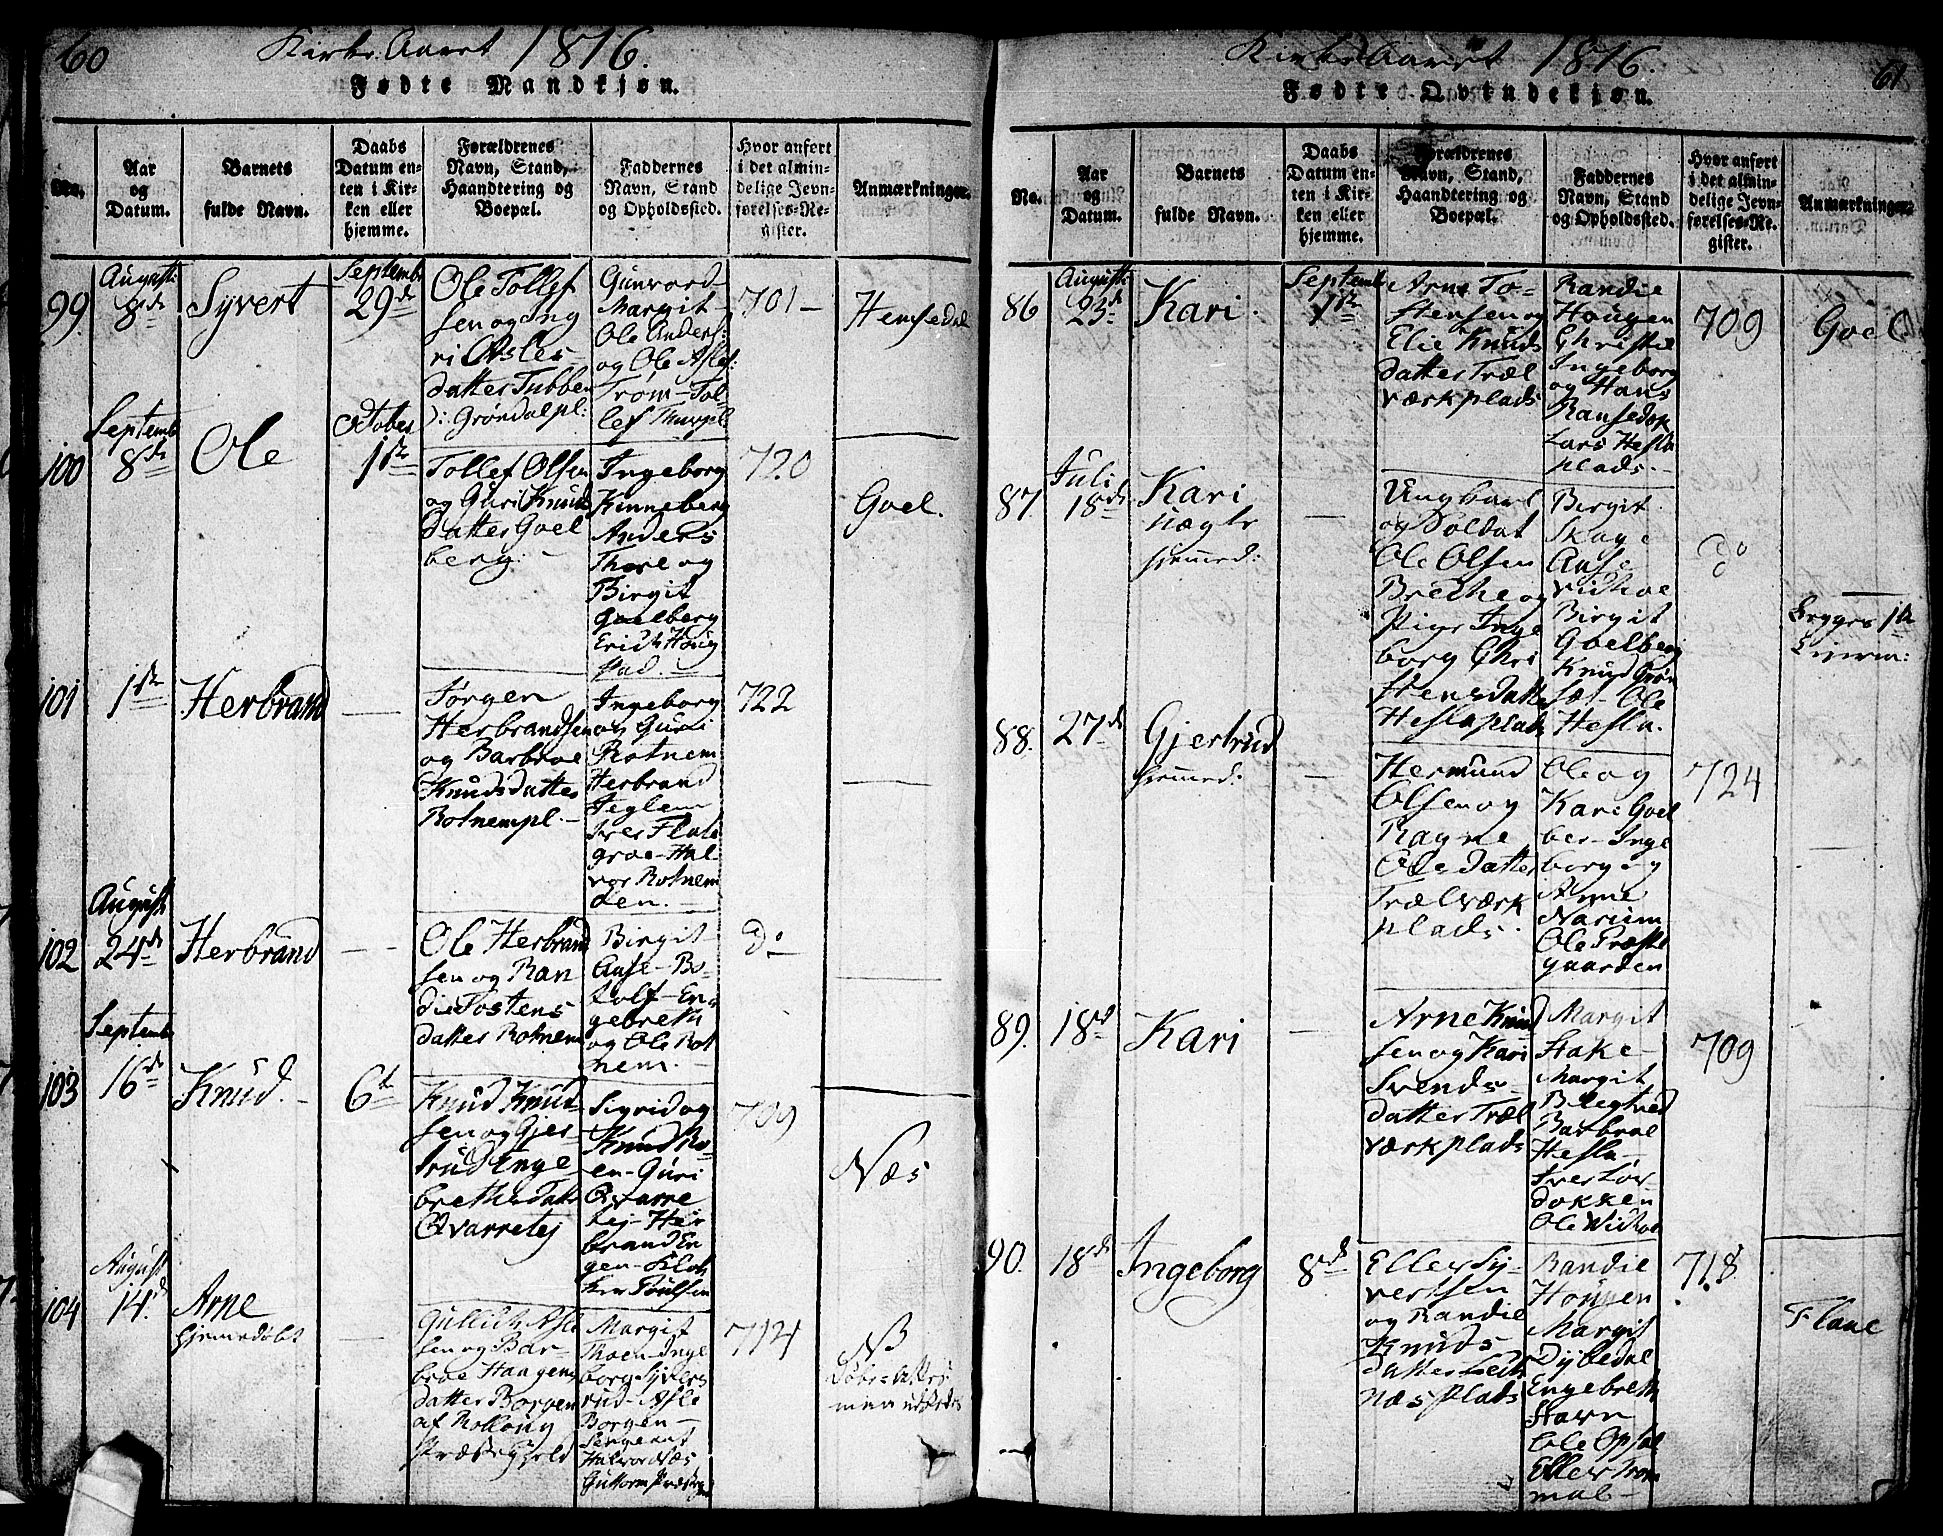 60
Kirke Aaret 1816.
Fødte Mandkjøn.
No.
Aar
og
Datum.
Barnets
fulde Navn.
Daabs
Datum en-
ten i Kir-
ken eller
hjemme.
Forældrenes
Navn, Stand,
Haandtering og
Boepæl.
Faddernes
Navn, Stand
og Opholdssted.
Hvor anført
i det almin-
delige Jevn-
førelses-Re-
gister.
Anmærkninger.
99
August:
8de
Syvert
Septemb
29de
Ole Tollef
sen og Ing
ri Asles-
datter Tubben
): Grøndalpl:
Gunvord
Margit-
Ole Anders:
og Ole Aslef:
Trøm-Tol-
lef
701-
Hemsedal
100
Septemb
8de
Ole
October
1ste
Tollef Olsen
og Guri Knuds
datter Goel
berg.
Ingeborg
Kinneberg
Anders
Thore og
Birgit
Goelberg
Erich Houg
stad.
720
Goel.
101
1ste
Herbrand
—
Jørgen
Herbrandsen
og Barbroe
Knudsdatter
Rotnempl.-
Ingeborg
og Guri
Rotnem
Herbrand
Teglem
Iver Flate
groe-Hal-
vor Rotnem
den.
722
102
August
24de
Herbrand
—
Ole Herbrand
sen og Ran
die Tostens
datter Rotnem
Birgit
Anse-Bo-
tolf-En-
gebreth
og Ole Rot
nem.-
do
103
Septemb
16de
Knud
6te
Knud Knud
sen og Gjer-
trud Enge
breths Datter
Qvarretej
Sigrid og
Knud Ro-
en-Guri
Qvarre
tej-Her
brand En
gen-Klok
ker Poulsen
709
Næs
104
August
14de
Arne
hjemedøbt
—
Gullich Asle
sen og Bar-
broe Haagens
datter Borgen
af Rolloug
Præstegjeld
Margit
Thoen-Inge
borg Syvers
rud-Asle
Borgen-
Sergeant
Halvord Næs
Guttorm
714
NB
61
Kirke Aaret 1816.
Fødte Qvindekjøn.
No.
Aar
og
Datum.
Barnets
fulde Navn.
Daabs
Datum en-
ten i Kir-
ken eller
hjemme.
Forældrenes
Navn, Stand,
Haandtering og
Boepæl.
Faddernes
Navn, Stand
og Opholdssted.
Hvor anført
i det almin-
delige Jevn-
førelses-Re-
gister.
Anmærkninger.
86
August:
23de
Kari.
Septemb
1ste
Arne To-
stensen og
Elie Knuds
datter Træl
værkplads
Randie
Hougen
Christil
Ingeborg
og Hans
Ransedok
Lars Hesla
plads.-
709
Goel
87.
Juli
18de
Kari
uægte
hiemmed:
—
Ungkarl
og Soldat
Ole Olsen
Brethe og
Pige Inge
borg Chri
stensdatter
Heslaplads
Birgit
Skage
Anse
vidhoe
Birgit
Goelberg
Knud Grøn
sæt-Ole
Hesla.
do
88.
27de
Gjertrud
hiemmed:
—
Hermund
Olsen og
Ragne
Ole Datter
Trælværk
plads.
Ole og
Kari Goel
ber-Inge
borg og
Arne
Narum
Ole Præste
gaarden
724
89.
18de
Kari
—
Arne Knud
sen og Kari
Svends-
datter Træl
værkplads
Margit
Stake-
Margit
Barbroe
Hesla-
Iver Løv-
dokken
Ole Widhoe
709
90.
18de
Ingeborg
8de
Eller Sy-
vertsen
og Randie
Knuds
datter
næs plads
Randie
Hougen
Margit
Dybedal
Engebreth
Stavn
Ole Opsal
Eller Trom
mal-
718
Flaae